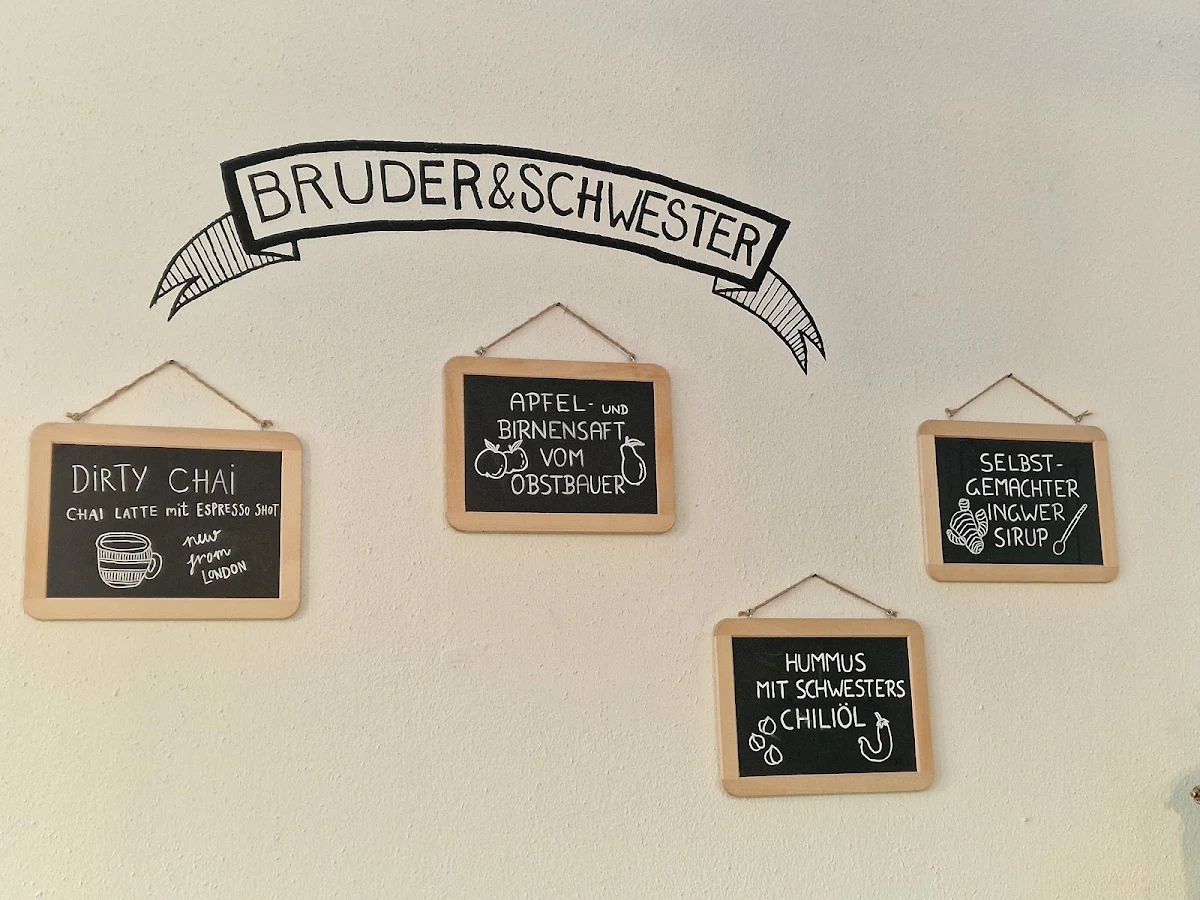 BRUDER&SCHWESTER
DiRTY CHAi
CHAI LATTE mit ESPRESSO SHOT
new
from
LONDON
APFEL- UND
BIRNENSAFT
VOM
OBSTBAUER
SELBST-
GEMACHTER
INGWER
SIRUP
HUMMUS
MIT SCHWESTERS
CHILIÖL